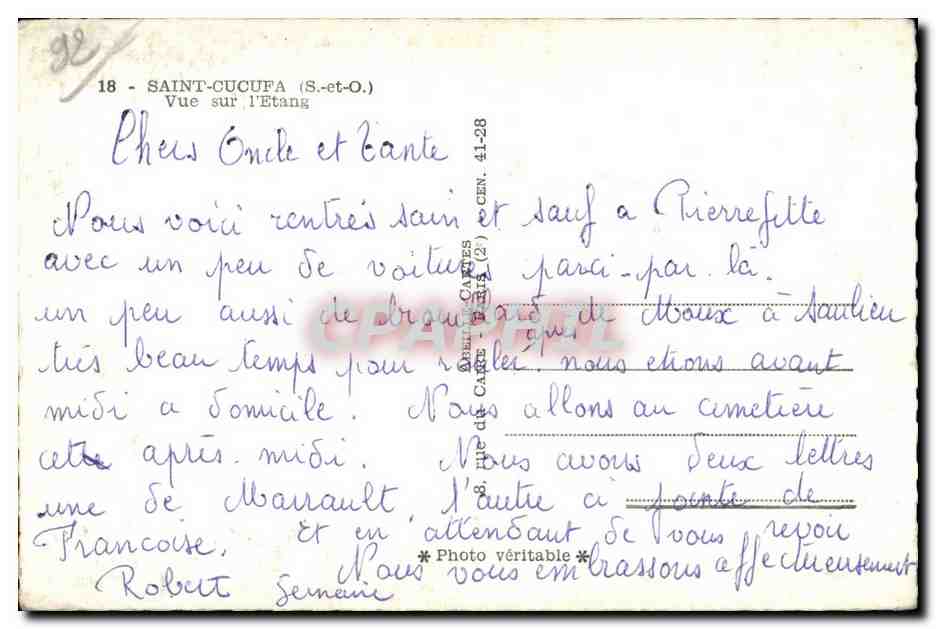 92
18 - SAINT-CUCUFA (S.-et-O.)
Vue sur l'Etang
Chers Oncle et Tante
Nous voici rentrés sain et sauf a Pierrefitte
avec un peu de voitures parci-par là.
un peu aussi de brouillard de Moux à Saulieu
après
très beau temps pour rouler. nous etions avant
midi a domicile. Nous allons au cimetière
cette après-midi. Nous avons deux lettres
une de Marrault, l'autre ci jointe de
Francoise. Et en attendant de vous revoir
Nous vous embrassons affectueusement
Robert Germaine
ABEILLE-CARTES
8, rue du Caire - PARIS (2e) CEN. 41-28
* Photo véritable *
CPAPHIL